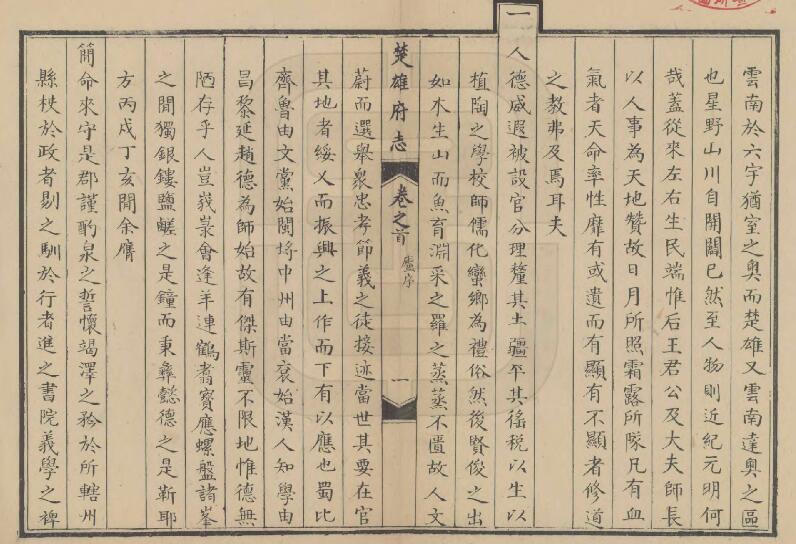 雲南於六宇猶室之奧而楚雄又雲南達奧之區
也星野山川自開闢已然至人物則近紀元明何
哉蓋從來左右生民端惟后王君公及大夫師長
以人事為天地贊故日月所照霜露所隊凡有血
氣者天命率性靡有或遺而有顯有不顯者修道
之教弗及焉耳夫
一人德威遐被設官分理釐其土疆平其徭稅以生以
植陶之學校師儒化蠻鄉為禮俗然後賢俊之出
如木生山而魚育淵采之羅之蒸蒸不匱故人文
楚雄府志 卷之首 盧序 一
蔚而選舉衆忠孝節義之徒接迹當世其要在官
其地者綏乂而振興之上作而下有以應也蜀比
齊魯由文黨始閩埒中州由當袞始漢人知學由
昌黎延趙德為師始故有傑斯靈不限地惟德無
陋存乎人豈峩㟭會逢羊連鶴翥寶應螺盤諸峯
之閒獨銀鏤鹽鹺之是鐘而秉彝懿德之是靳耶
方丙戌丁亥閒余膺
簡命來守是郡謹酌泉之誓懷竭澤之矜於所轄州
縣枎於政者剔之馴於行者進之書院義學之裨